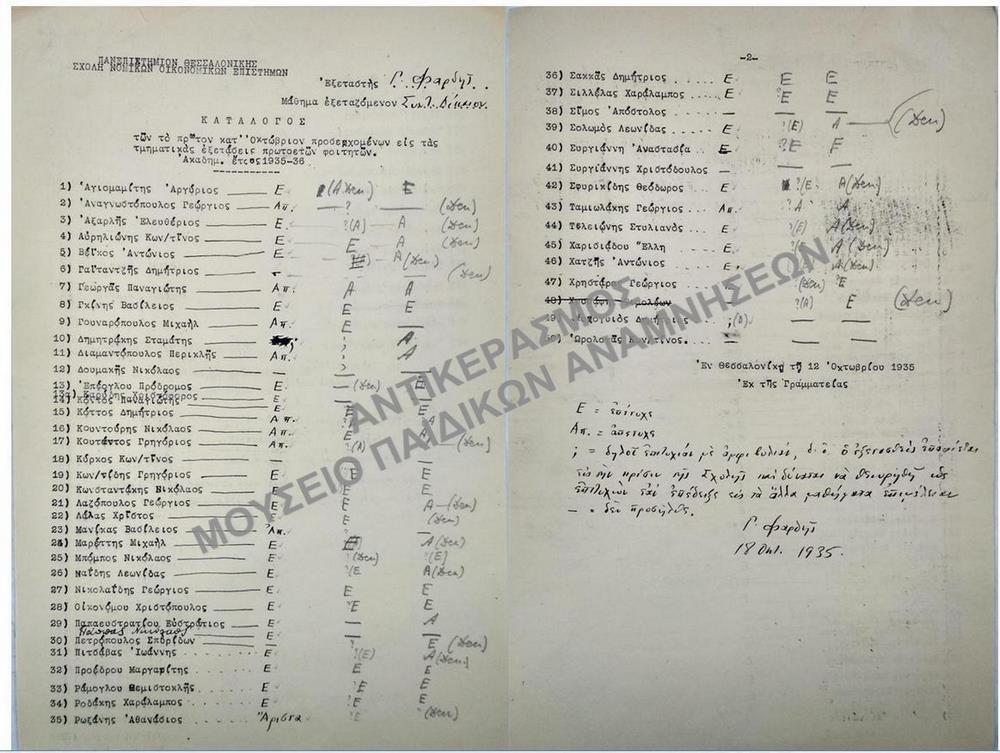 ΠΑΝΕΠΙΣΤΗΜΙΟΝ ΘΕΣΣΑΛΟΝΙΚΗΣ
ΣΧΟΛΗ ΝΟΜΙΚΩΝ ΟΙΚΟΝΟΜΙΚΩΝ ΕΠΙΣΤΗΜΩΝ
Ἐξεταστὴς Γ. Φαρδῆς
Μάθημα ἐξεταζόμενον Συντ. Δίκαιον.
ΚΑΤΑΛΟΓΟΣ
τῶν τὸ πρῶτον κατ' Ὀκτώβριον προσερχομένων εἰς τὰς
τμηματικὰς ἐξετάσεις πρωτοετῶν φοιτητῶν.
Ἀκαδημ. ἔτος 1935-36
1) Ἁγιομαμίτης Ἀργύριος — Ε (Α Δεκ) Ε
2) Ἀναγνωστόπουλος Γεώργιος — Απ. — ? — (Δεκ)
3) Ἀζαρλῆς Ἐλευθέριος — Ε ?(Α) Α (Δεκ)
4) Αὐρηλιώνης Κων/τῖνος — Ε Ε Α (Δεκ)
5) Βέϊκος Ἀντώνιος — Ε Α (Δεκ)
6) Γαϊταντζῆς Δημήτριος — (Δεκ)
7) Γεωργᾶς Παναγιώτης — Απ. Α Α
8) Γκίνης Βασίλειος — Ε Ε Ε
9) Γουναρόπουλος Μιχαὴλ — Απ. Ε —
10) Δημητράκης Σταμάτης — ? Α
11) Διαμαντόπουλος Περικλῆς — Απ. ? Α
12) Δουμακῆς Νικόλαος — — —
13) Ἐπέογλου Πρόδρομος — (Δεκ) Ε
14) Κόττος Παναγιώτης
15) Κόττος Δημήτριος — Ε Ε
16) Κουντούρης Νικόλαος — Απ. Ε Α
17) Κουτάντος Γρηγόριος — Απ. ?(Α) Α (Δεκ)
18) Κόρκος Κων/τῖνος — — —
19) Κων/τίδης Γρηγόριος — Ε Ε Ε
20) Κωνσταντάκης Νικόλαος — Ε Ε Ε
21) Λαζόπουλος Γεώργιος — Ε Ε Α — (Δεκ)
22) Λάλας Χρῖστος — Ε Ε (Δεκ)
23) Μανίκας Βασίλειος — Απ. Ε —
24) Μαρέττης Μιχαὴλ — Ε Α (Δεκ)
25) Μπόμπος Νικόλαος — Ε ?(Δεκ) ?(Ε)
26) Ναΐδης Λεωνίδας — Ε ?(Ε Α (Δεκ)
27) Νικολαΐδης Γεώργιος — Ε Ε Ε
28) Οἰκονόμου Χριστόπουλος — Ε ?Ε Ε
29) Παπαευστρατίου Εὐστράτιος — Ε — Α
Νικόλαος — Ε — —
30) Πετρόπουλος Σπυρίδων — — ? Ε (Δεκ)
31) Πιτσάβας Ἰωάννης . . . . . . Ε ?(Ε) Α (Δεκ)
32) Προέδρου Μαργαρίτης . . . . Ε Ε Ε
33) Ράμογλου Θεμιστοκλῆς . . . . Ε ?Ε Ε
34) Ροδάκης Χαράλαμπος . . . . . Ε Ε Ε
35) Ρωζάνης Ἀθανάσιος . . . . . Ἄριστα ?Ε (Δεκ)
-2-
36) Σακκᾶς Δημήτριος . . . . . Ε Ε Ε
37) Σιλλέλας Χαράλαμπος . . . . Ε ?Ε Ε
38) Σῖμος Ἀπόστολος . . . . . — — —
39) Σολωμὸς Λεωνίδας . . . . . Ε ?(Ε) Α — (Δεκ)
40) Συργιάννη Ἀναστασία . . . Ε ? —
41) Συργιάννης Χριστόδουλος — — —
42) Σφυρικίδης Θεόδωρος . . . . Ε ?(Ε Α (Δεκ)
43) Ταμιωλάκης Γεώργιος . . . . Απ. ?Α Α
44) Τελειώνης Στυλιανὸς . . . . Ε ?(Ε) Α (Δεκ)
45) Χαρισιάδου Ἕλλη . . . . . Ε ?Ε Α (Δεκ)
46) Χατζῆς Ἀντώνιος . . . . . Ε Α (Δεκ)
47) Χρηστάρας Γεώργιος . . . . Ε (Δεκ) Ε
48) — ?(Α) Ε (Δεκ)
49) Δημήτριος . . . ;(Α) — —
50) Ὡρολογᾶς Κων/τῖνος . . . — — —
Ἐν Θεσσαλονίκῃ τῇ 12 Ὀκτωβρίου 1935
Ἐκ τῆς Γραμματείας
Ε = ἐπέτυχε
Απ. = ἀπέτυχε
; = δηλοῖ ἐπιτυχίαν μὲ ἀμφιβολίαν, δ. ὁ ἐξετασθεὶς
εἰς τὴν κρίσιν τῆς Σχολῆς καὶ δύναται νὰ θεωρηθῇ ὡς
ἐπιτυχὼν ἐὰν εἰς τὰ ἄλλα μαθήματα
— = δὲν προσῆλθε.
Γ. Φαρδῆς
18 Οκτ. 1935.
ΑΝΤΙΚΕΡΑΣΜΟΣ
ΜΟΥΣΕΙΟ ΠΑΙΔΙΚΩΝ ΑΝΑΜΝΗΣΕΩΝ